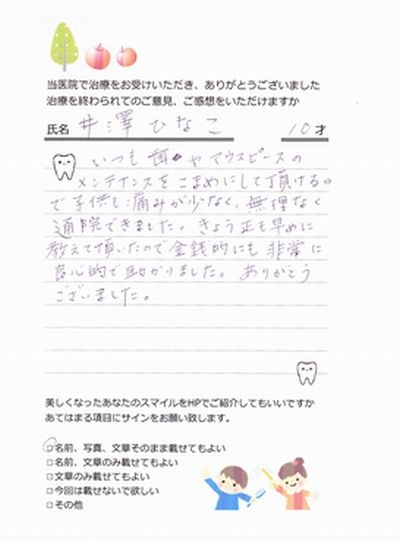 当医院で治療をお受けいただき、ありがとうございました
治療を終わられてのご意見、ご感想をいただけますか
氏名 井澤ひなこ 10才
いつも歯やマウスピースの
メンテナンスをこまめにして頂けるの
で子供も痛みが少なく、無理なく
通院できました。きょう正も早めに
教えて頂いたので金銭的にも非常に
良心的で助かりました。ありがとう
ございました。
美しくなったあなたのスマイルをHPでご紹介してもいいですか
あてはまる項目にサインをお願い致します。
□名前、写真、文章そのまま載せてもよい
□名前、文章のみ載せてもよい
□文章のみ載せてもよい
□今回は載せないで欲しい
□その他